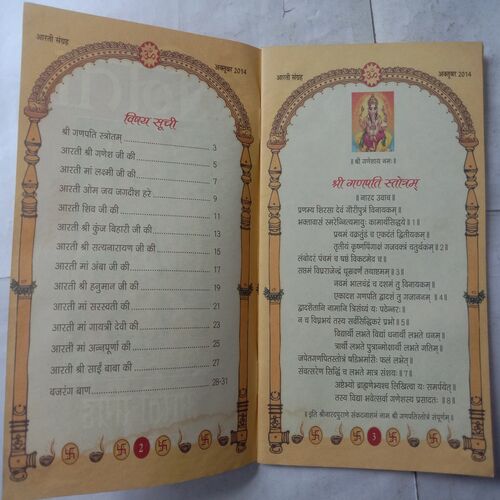 आरती संग्रह
अक्तूबर 2014
विषय सूची
श्री गणपति स्त्रोतम् 3
आरती श्री गणेश जी की 5
आरती मां लक्ष्मी जी की 7
आरती ओम जय जगदीश हरे 9
आरती शिव जी की 11
आरती श्री कुंज बिहारी जी की 13
आरती श्री सत्यनारायण जी की 15
आरती मां अंबा जी की 17
आरती श्री हनुमान जी की 19
आरती मां सरस्वती की 21
आरती मां गायत्री देवी की 23
आरती मां अन्नपूर्णा की 25
आरती श्री साईं बाबा की 27
बजरंग बाण 28-31
2
आरती संग्रह
अक्तूबर 2014
॥ श्री गणेशाय नमः॥
श्री गणपति स्तोत्रम्
॥ नारद उवाच॥
प्रणम्य शिरसा देवं गौरीपुत्रं विनायकम्॥
भक्तावासं स्मरेन्नित्यमायुः कामार्थसिद्धये॥1॥
प्रथमं वक्रतुंडं च एकदंतं द्वितीयकम्॥
तृतीयं कृष्णपिंगाक्षं गजवक्त्रं चतुर्थकम्॥2॥
लंबोदरं पंचमं च षष्ठं विकटमेव च॥
सप्तमं विघ्नराजेन्द्रं धूम्रवर्णं तथाष्टमम्॥3॥
नवमं भालचंद्रं च दशमं तु विनायकम्॥
एकादशं गणपतिं द्वादशं तु गजाननम्॥4॥
द्वादशैतानि नामानि त्रिसंध्यं यः पठेन्नरः॥
न च विघ्नभयं तस्य सर्वसिद्धिकरं प्रभो॥5॥
विद्यार्थी लभते विद्यां धनार्थी लभते धनम्॥
त्रार्थी लभते पुत्रान्मोक्षार्थी लभते गतिम्॥
जपेतगणपतिस्तोत्रं षड्भिर्मासैः फलं लभेत्॥
संवत्सरेण सिद्धिं च लभते मात्र संशयः॥7॥
अष्टेभ्यो ब्राह्मणेभ्यश्च लिखित्वा यः समर्पयेत्॥
तस्य विद्या भवेत्सर्वा गणेशस्य प्रसादतः॥8॥
॥ इति श्रीनारदपुराणे संकटनाशनं नाम श्री गणपतिस्तोत्रं संपूर्णम्॥
3